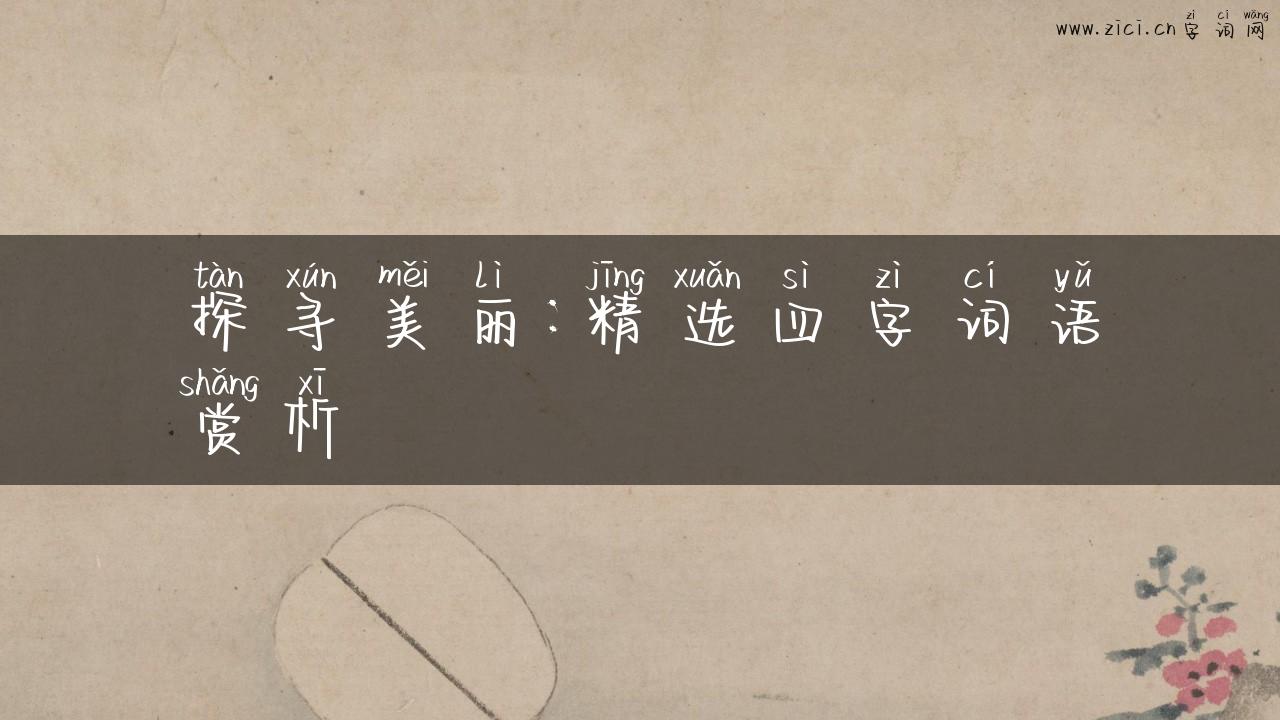 www.zici.cn字词网
zì cí wǎng
tàn xún měi lì jīng xuǎn sì zì cí yǔ
探寻美丽：精选四字词语
shǎng xī
赏析